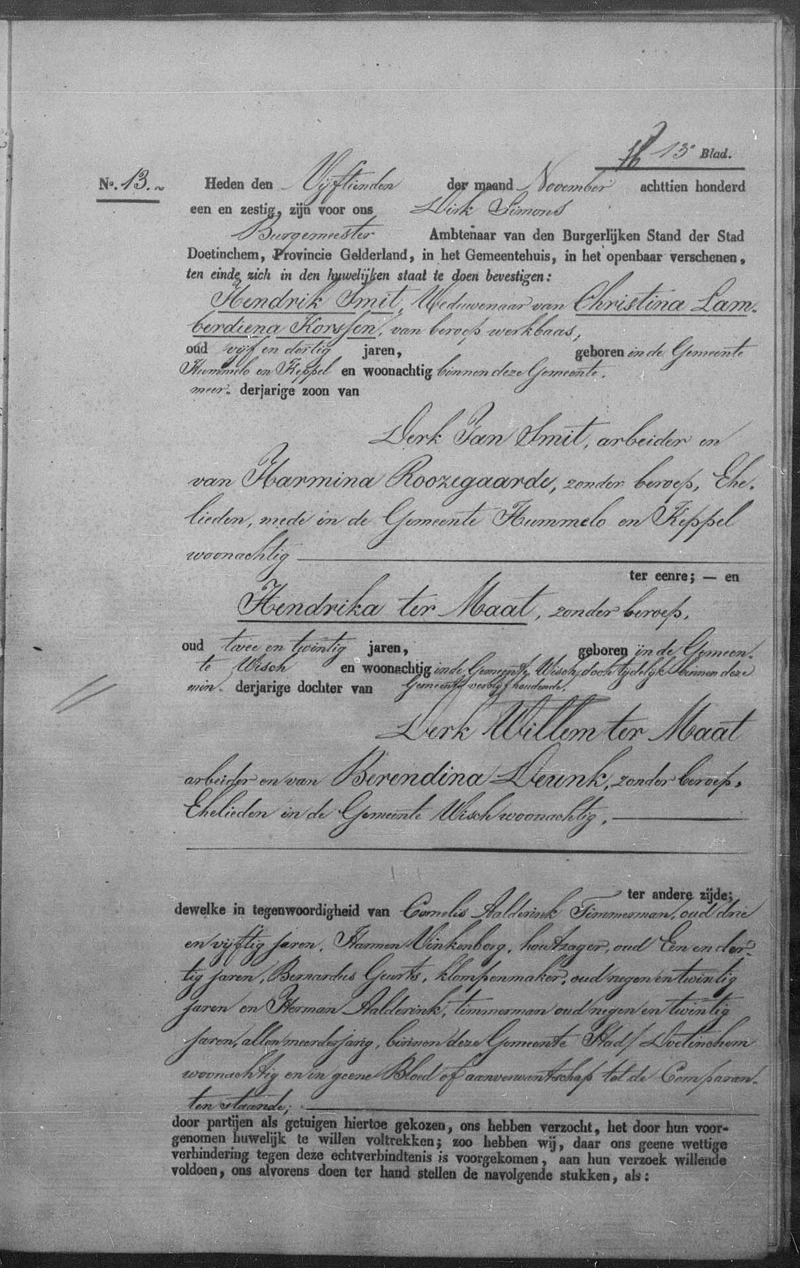 13e Blad.
No. 13. Heden den Vijftienden der maand November achttien honderd
een en zestig, zijn voor ons Dirk Simons
Burgemeester Ambtenaar van den Burgerlijken Stand der Stad
Doetinchem, Provincie Gelderland, in het Gemeentehuis, in het openbaar verschenen,
ten einde zich in den huwelijken staat te doen bevestigen:
Hendrik Smit, Weduwenaar van Christina Lam-
berdiena Korssen, van beroep werkbaas,
oud vijf en dertig jaren, geboren in de Gemeente
Hummelo en Keppel en woonachtig binnen deze Gemeente.
meer- derjarige zoon van
Derk Jan Smit, arbeider en
van Harmina Roozegaarde, zonder beroep, Ehe-
lieden, mede in de Gemeente Hummelo en Keppel
woonachtig
ter eenre; — en
Hendrika ter Maat, zonder beroep,
oud twee en twintig jaren, geboren in de Gemeen-
te Wisch en woonachtig in de Gemeente Wisch, doch tijdelijk binnen deze
min- derjarige dochter van Gemeente verblijf houdende.
Derk Willem ter Maat
arbeider en van Berendina Deunk, zonder beroep,
Ehelieden in de Gemeente Wisch woonachtig.
ter andere zijde;
dewelke in tegenwoordigheid van Cornelis Aalderink Timmerman, oud drie
en vijftig jaren, Harmen Vinkenborg, houtzager, oud Een en der-
tig jaren, Bernardus Geurts, klompenmaker, oud negen en twintig
jaren en Herman Aalderink, timmerman oud negen en twintig
jaren, allen meerderjarig, binnen deze Gemeente Stad/Doetinchem
woonachtig en in geene Bloed of aanverwantschap tot de Comparan-
ten staande;
door partijen als getuigen hiertoe gekozen, ons hebben verzocht, het door hun voor-
genomen huwelijk te willen voltrekken; zoo hebben wij, daar ons geene wettige
verhindering tegen deze echtverbindtenis is voorgekomen, aan hun verzoek willende
voldoen, ons alvorens doen ter hand stellen de navolgende stukken, als: